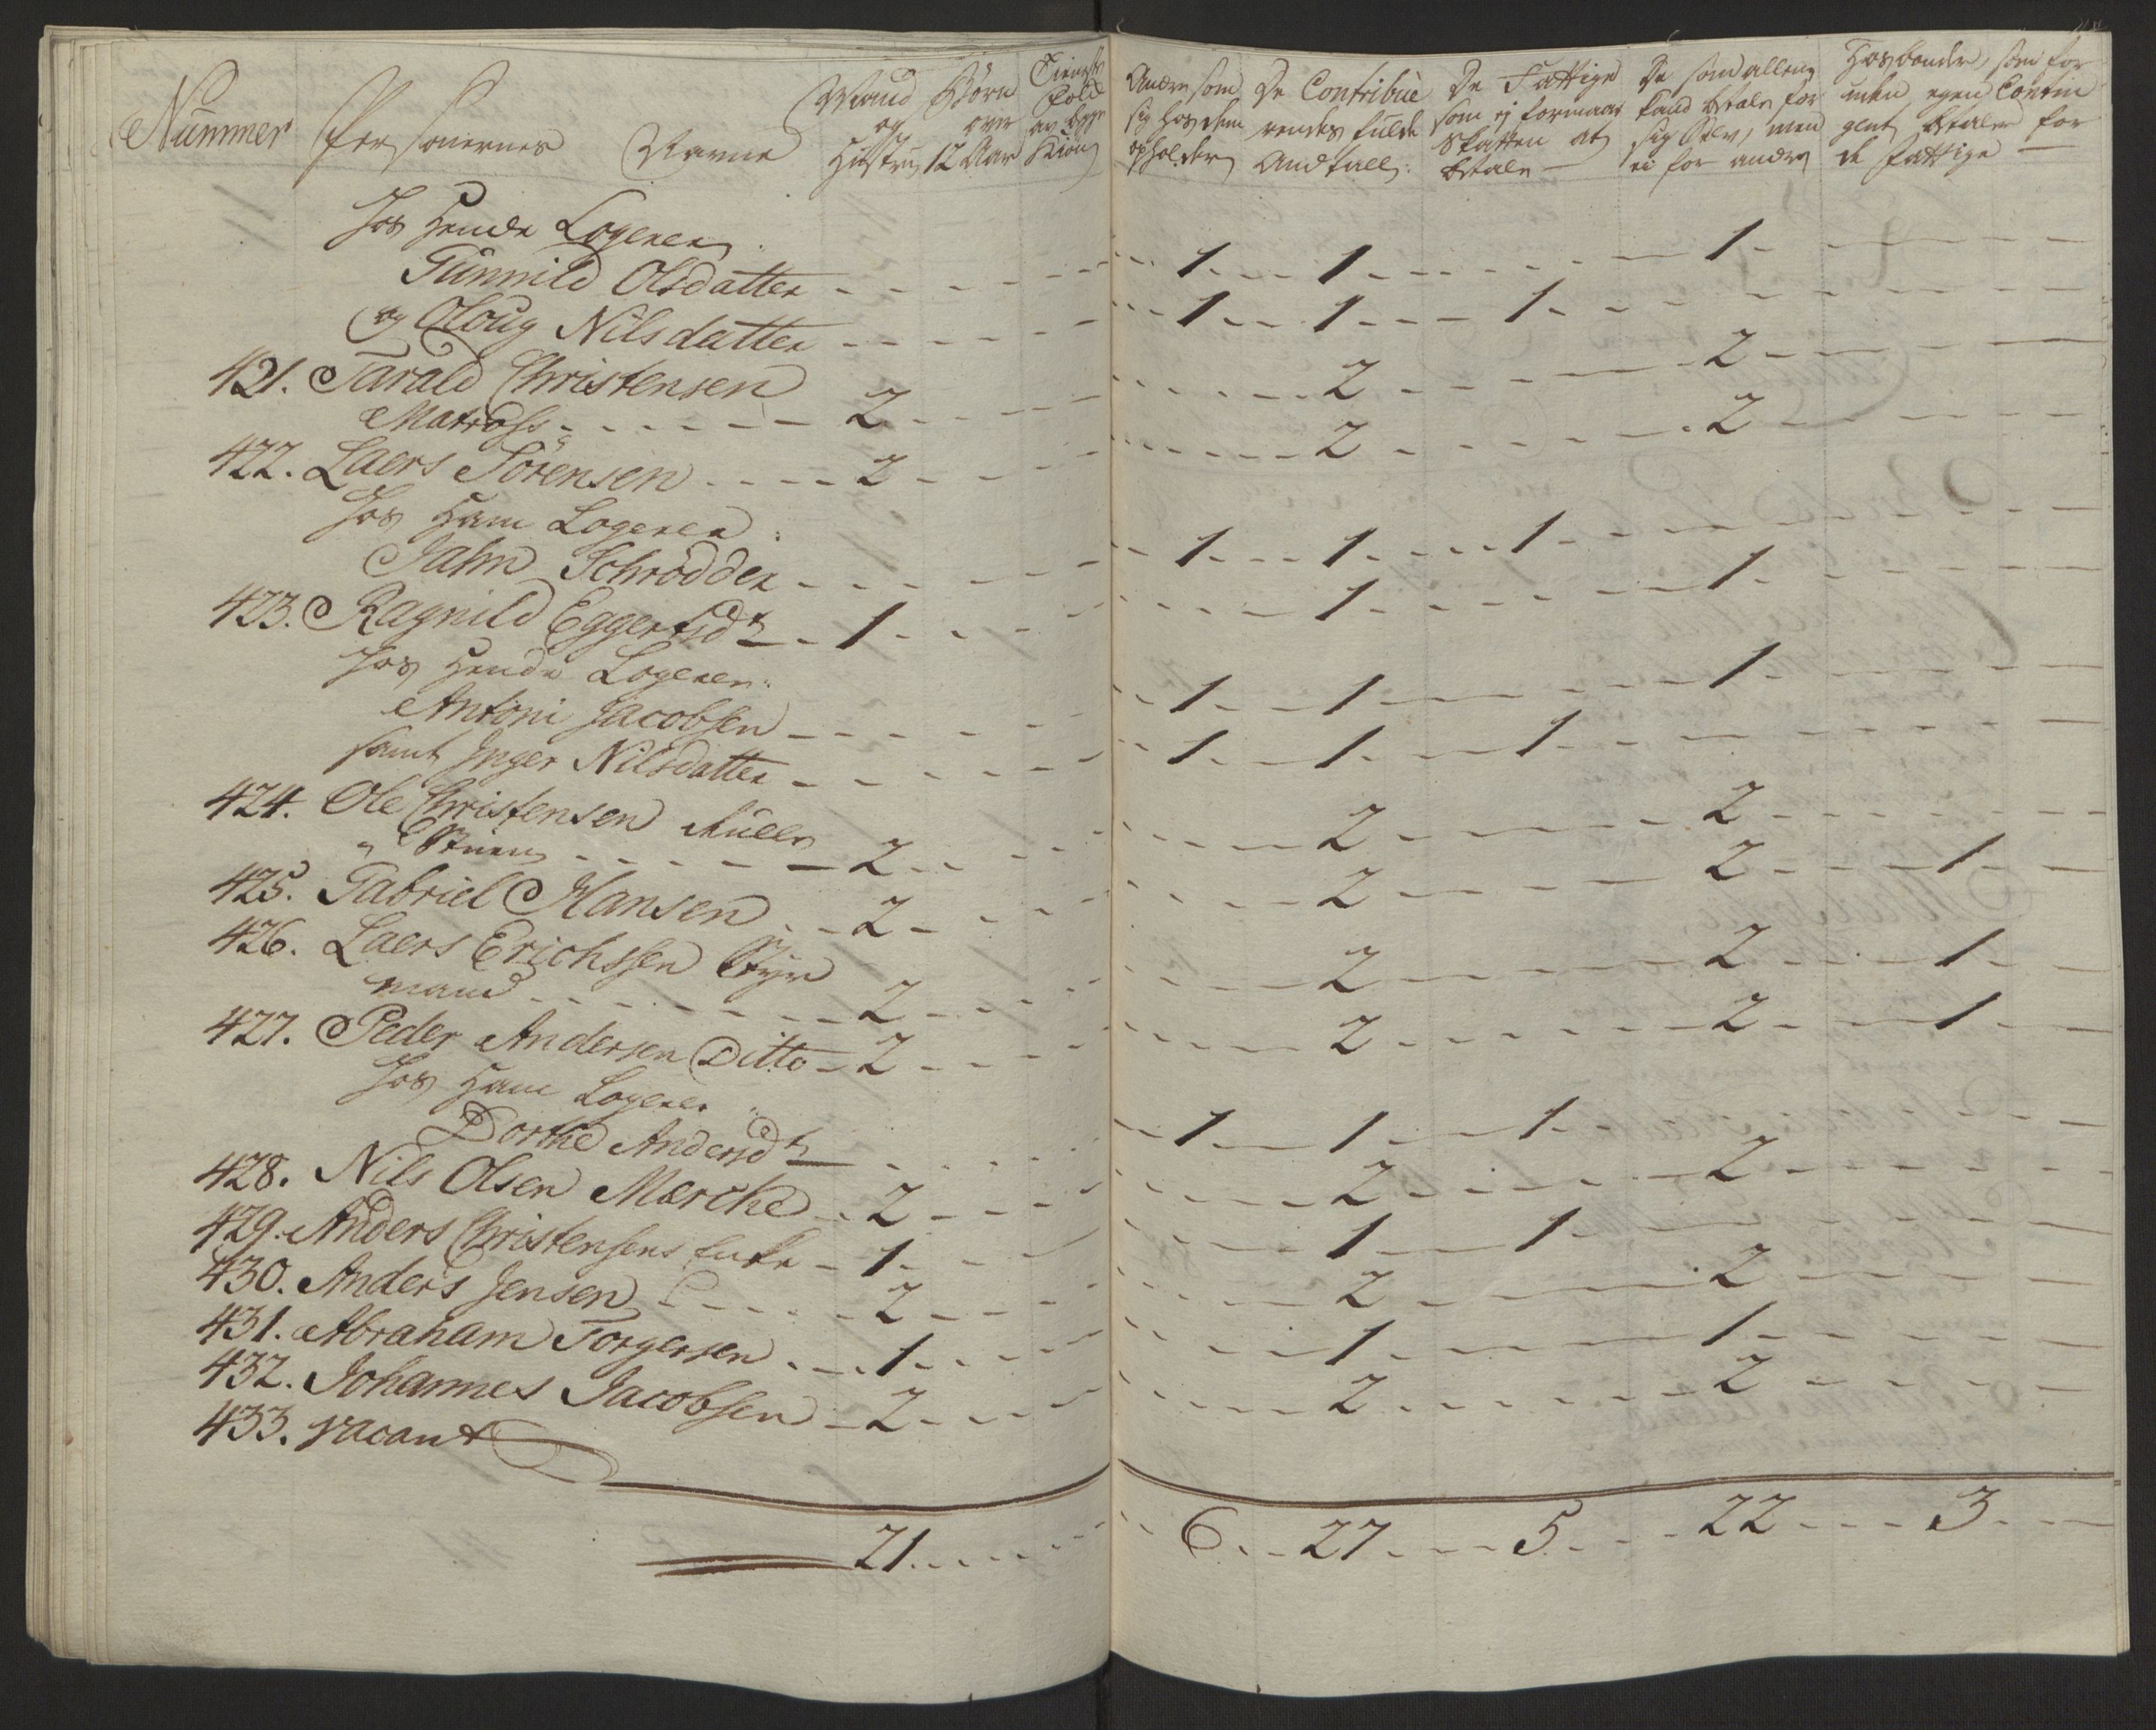 Nummer Personernes Navne Mand og Hustru Börn over 12 Aar Tieneste Folk af begge Kiøn Andre som sig hos dem opholder De Contribuerendes fulde Andtall. De Fattige som ej formaar Skatten at betale De som alleene kand betale for sig selv, men ei for andre Hosbonder, som for uden egen Contingent betaler for de fattige
Hos Hende Logerer
Gunnild Olsdatter - - - - 1 - - - 1 - - - - - 1 -
og Oloug Nilsdatter - - - - 1 - - 1 - - - 1 -
421. Tarald Christensen
Matross - - - - 2 - - - 2 - - - 2 -
422. Laers Sörensen - - - - 2 - - - 2 - - - 2 -
Hos Ham Logerer:
Jahn Schrödder - - - - 1 - - - 1 - - - 1 -
423. Ragnild Eggertsdr - 1 - - - 1 - - - 1 -
Hos Hende Logerer:
Antoni Jacobsen - - - - 1 - - 1 - - - 1 -
samt Inger Nilsdatter - - - - 1 - - 1 - - 1 -
424. Ole Christensen
- - - - 2 - - - 2 - - - 2 -
425. Gabriel Hansen - - 2 - - - 2 - - - 2 - - - 1 -
426. Laers Erichssen Styr
mand - - - - 2 - - - 2 - - - 2 - - - 1 -
427. Peder Andersen Ditto - 2 - - - 2 - - - 2 - - - 1 -
Hos Ham Logerer
Dorthe Andersdr - - - - 1 - - 1 - - 1 -
428. Nils Olsen Mærche - 2 - - - 2 - - - 2 -
429. Anders Christensens Enke - 1 - - - 1 - - 1 -
430. Anders Jensen - - - - 2 - - - 2 - - - 2 -
431. Abraham Torgersen - - - 1 - - - 1 - - - 1 -
432. Johannes Jacobsen - 2 - - - 2 - - - 2 -
433. vacant
21 - - - - 6 - - 27 - - - 5 - - - 22 - - - 3 - - -